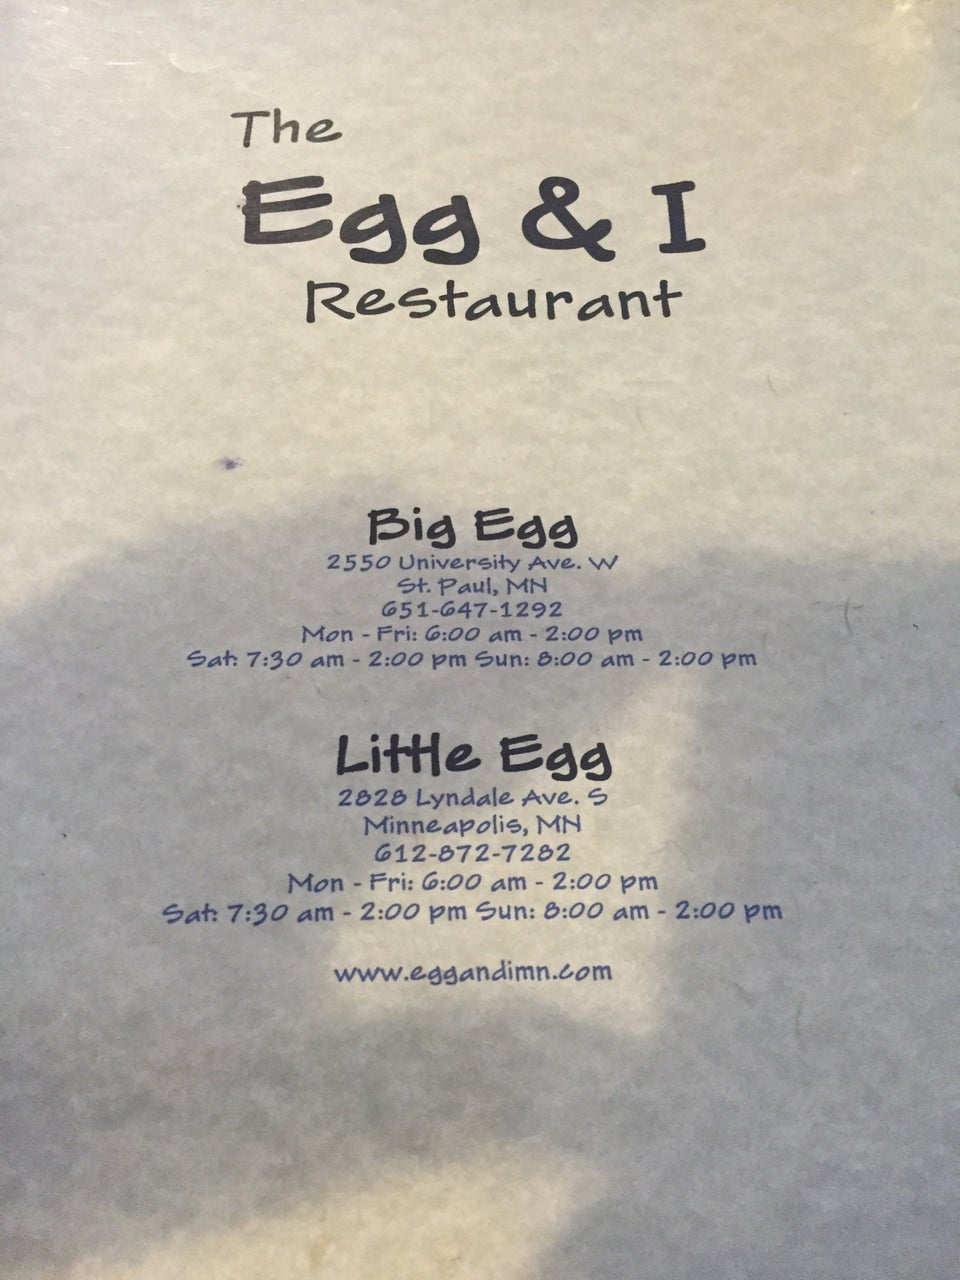 The
Egg & I
Restaurant
Big Egg
2550 University Ave. W
St. Paul, MN
651-647-1292
Mon - Fri: 6:00 am - 2:00 pm
Sat: 7:30 am - 2:00 pm Sun: 8:00 am - 2:00 pm
Little Egg
2828 Lyndale Ave. S
Minneapolis, MN
612-872-7282
Mon - Fri: 6:00 am - 2:00 pm
Sat: 7:30 am - 2:00 pm Sun: 8:00 am - 2:00 pm
www.eggandimn.com